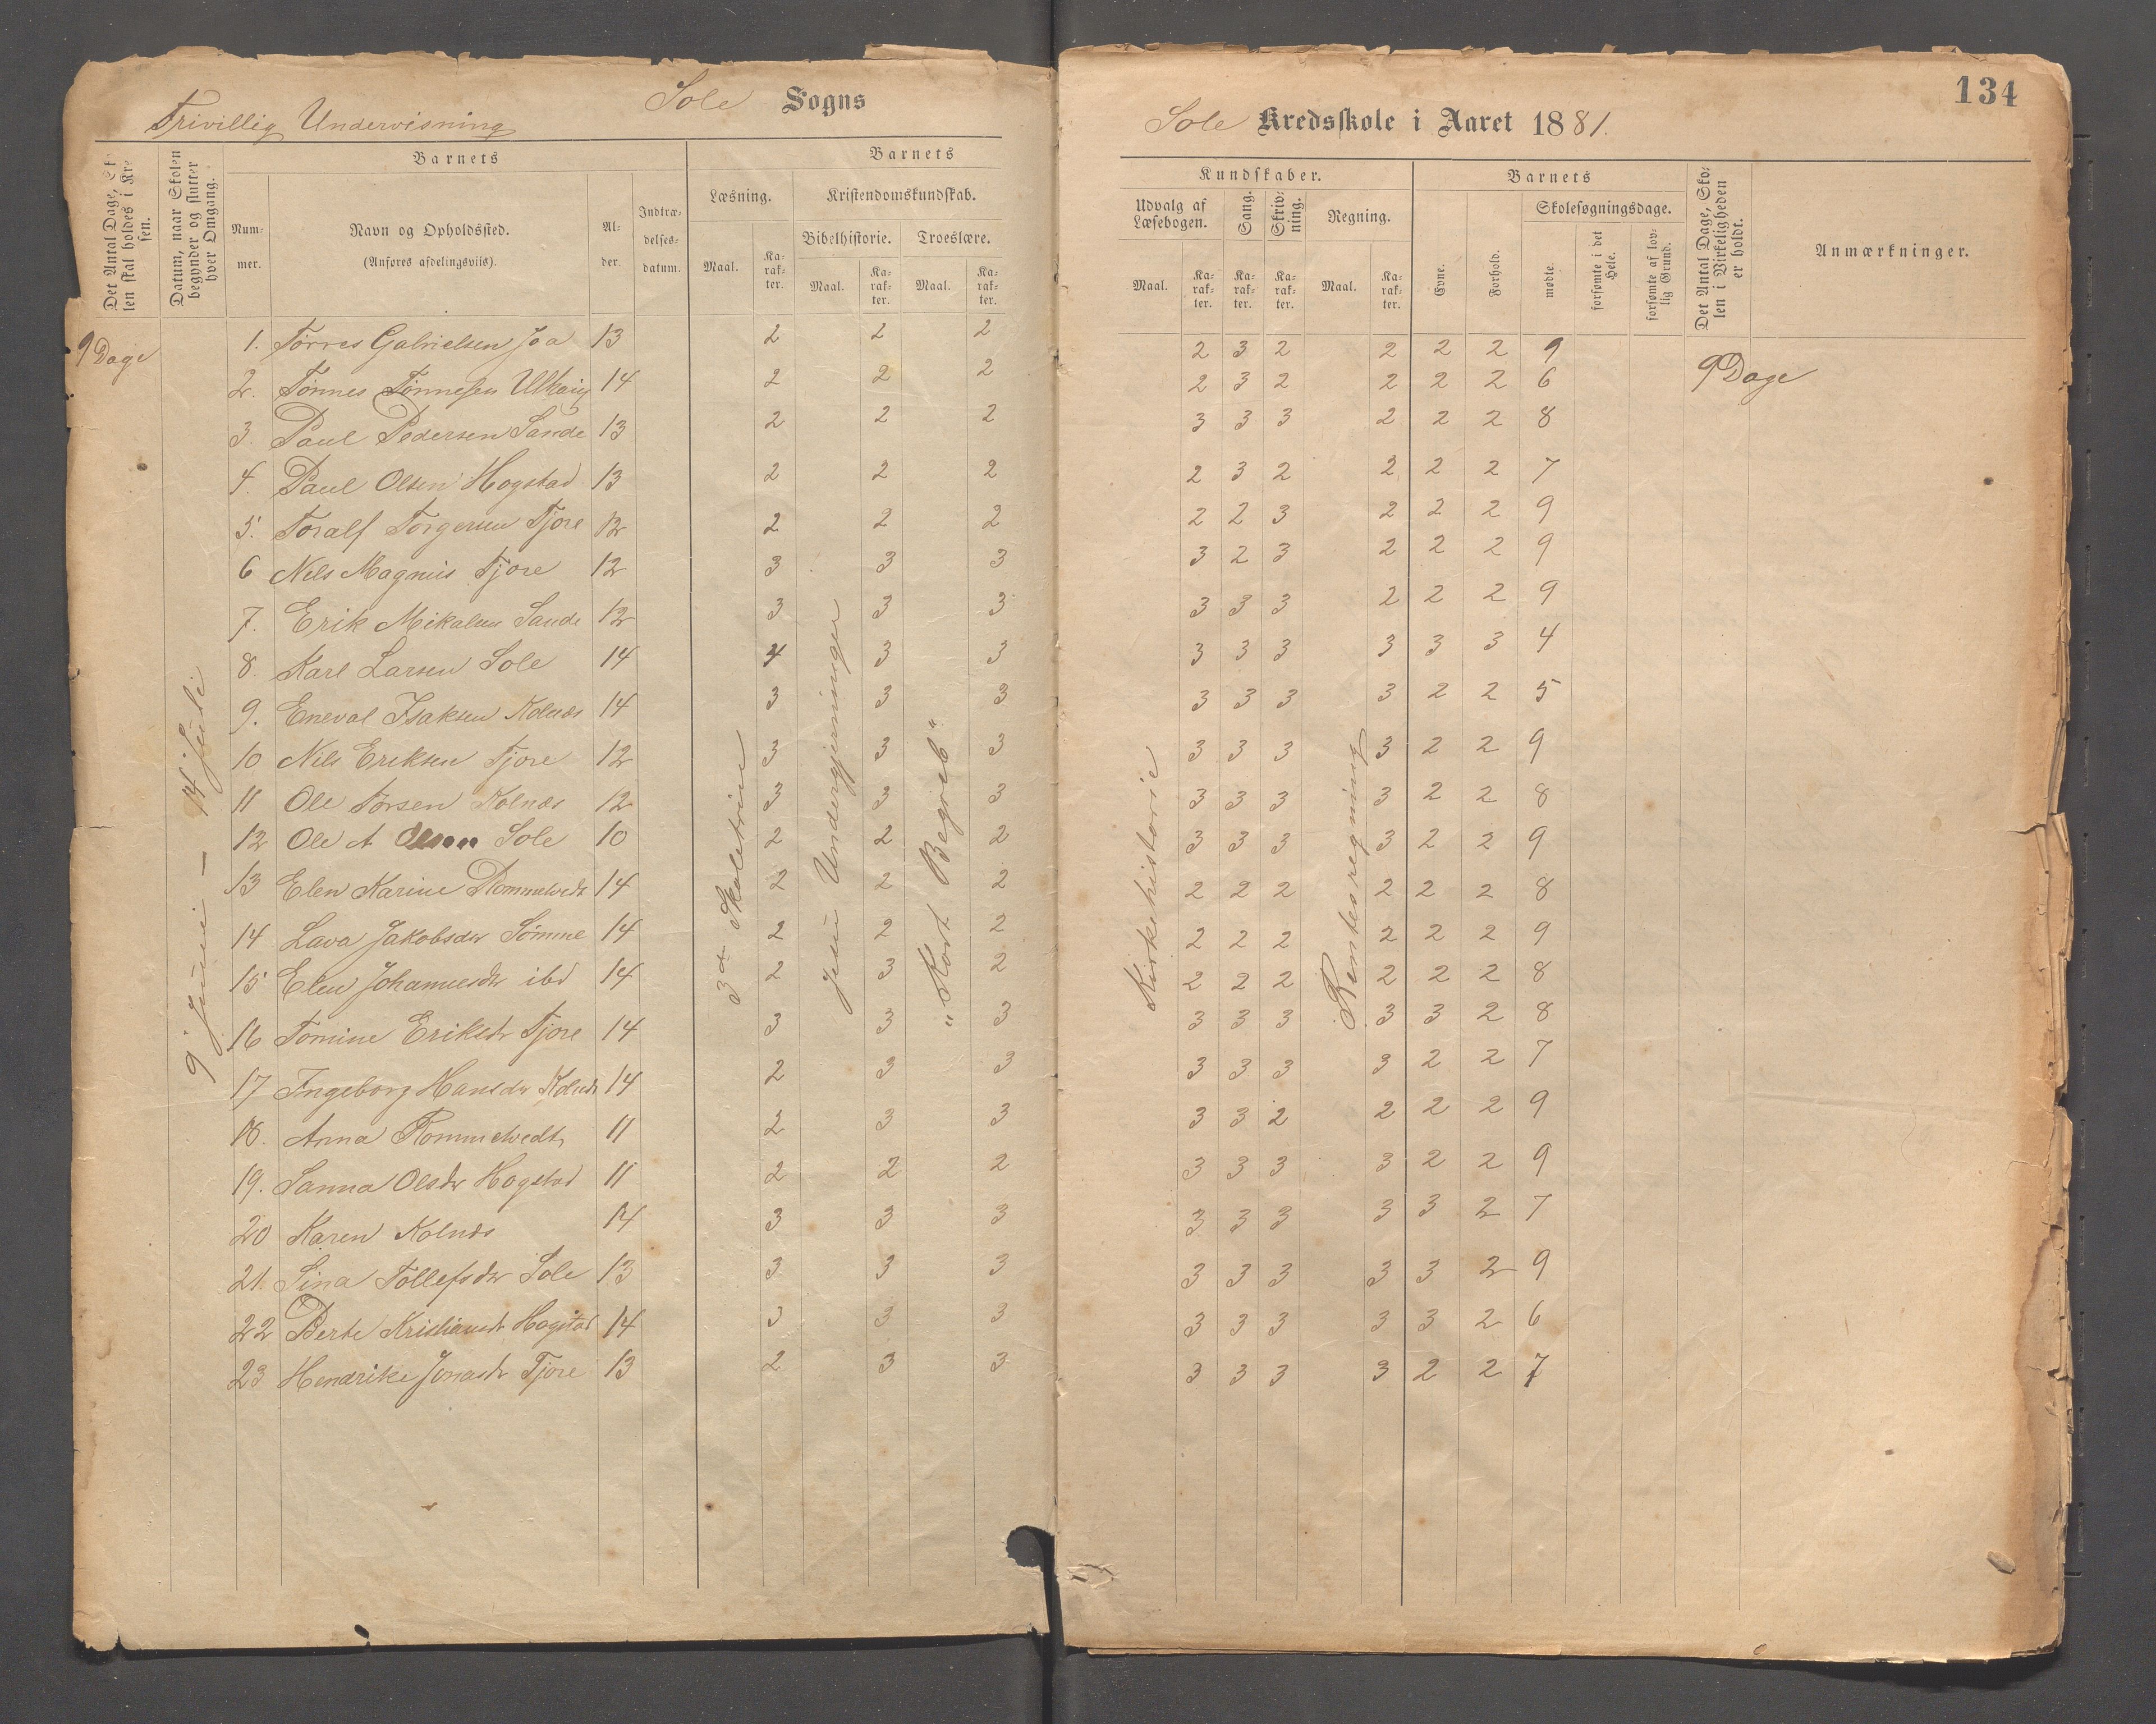 134
Sole Sogns
Frivillig Undervisning
Sole Kredsskole i Aaret 1881.
Det Antal Dage, Sko-
len skal holdes i Kred-
sen.
Datum, naar Skolen
begynder og slutter
hver Omgang.
Barnets
Num-
mer.
Navn og Opholdssted.
(Anføres afdelingsviis).
Al-
der.
Indtræ-
delses-
datum.
Barnets
Læsning.
Maal.
Ka-
rak-
ter.
Kristendomskundskab.
Bibelhistorie.
Maal.
Ka-
rak-
ter.
Troeslære.
Maal.
Ka-
rak-
ter.
Kundskaber.
Udvalg af
Læsebogen.
Maal.
Ka-
rak-
ter.
Sang.
Ka-
rak-
ter.
Skriv-
ning.
Ka-
rak-
ter.
Regning.
Maal.
Ka-
rak-
ter.
Barnets
Evne.
Forhold.
Skolesøgningsdage.
mødte.
forsømte i det
Hele.
forsømte af lov-
lig Grund.
Det Antal Dage, Sko-
len i Virkeligheden
er holdt.
Anmærkninger.
9 Dage
9 Juni – 14 Juli
3die Skoletrin
Jesu Undergjerninger
"Kort Begreb"
Kirkehistorie
Rentesregning
9 Dage
1. Tørres Gabrielsen Joa 13 2 2 2 2 3 2 2 2 2 9
2. Tønnes Tønnesen 14 2 2 2 2 3 2 2 2 2 6
3. Paul Pedersen Sande 13 2 2 2 3 3 3 2 2 2 8
4. Paul Olsen Hogstad 13 2 2 2 2 3 2 2 2 2 7
5. Toralf Torgersen Tjore 12 2 2 2 2 2 3 2 2 2 9
6 Nels Magnus Tjore 12 3 3 3 3 2 3 2 2 2 9
7. Erik Mikalsen Sande 12 3 3 3 3 3 3 2 2 2 9
8. Karl Larsen Sole 14 4 3 3 3 3 3 3 3 3 4
9. Eneval Isaksen Kolnæs 14 3 3 3 3 3 3 3 2 2 5
10 Nils Eriksen Tjore 12 3 3 3 3 3 3 3 2 2 9
11 Ole Torsen Kolnæs 12 3 3 3 3 3 3 3 2 2 8
12 Ole A Sole 10 2 2 2 3 3 3 3 2 2 9
13 Elen Karine Rommetvedt 14 2 2 2 2 2 2 2 2 2 8
14 Lava Jakobsdtr Sømme 14 2 2 2 2 2 2 2 2 2 9
15 Elen Johannesdtr ibd 14 2 3 2 2 2 2 2 2 2 8
16 Tomine Eriksdtr Tjore 14 3 3 3 3 3 3 3 3 2 8
17 Ingeborg Hansdtr Kolnæs 14 2 3 3 3 3 3 3 2 2 7
18. Anna Rommetvedt 11 2 3 3 3 3 2 2 2 2 9
19. Sanna Olsdtr Hogstad 11 2 2 2 3 3 3 3 2 2 9
20 Karen Kolnæs 14 3 3 3 3 3 3 3 3 2 7
21. Sina Tollefsdtr Sole 13 3 3 3 3 3 3 3 3 2 9
22 Berte Kristiansdtr Hogstad 14 3 3 3 3 3 3 3 3 2 6
23 Hendrike Jonasdtr Tjore 13 2 3 3 3 3 3 3 2 2 7